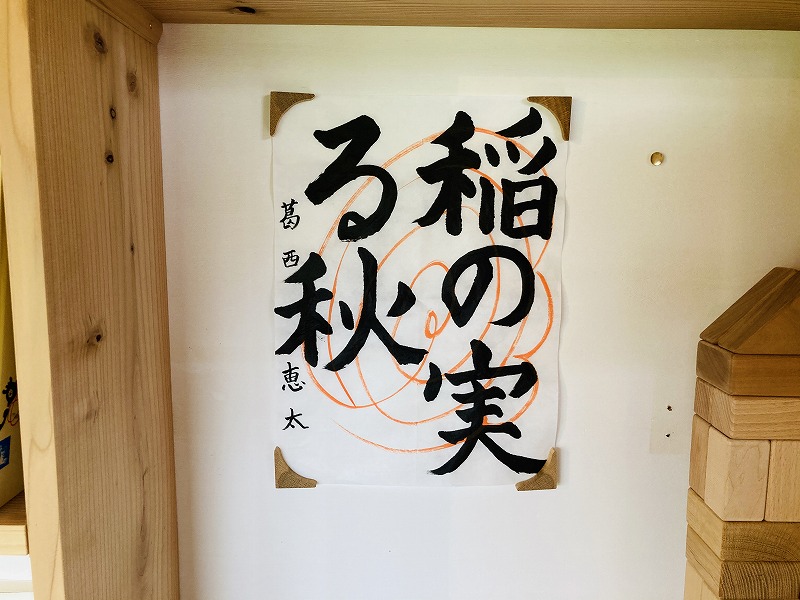 稲の実
る秋
葛西恵太